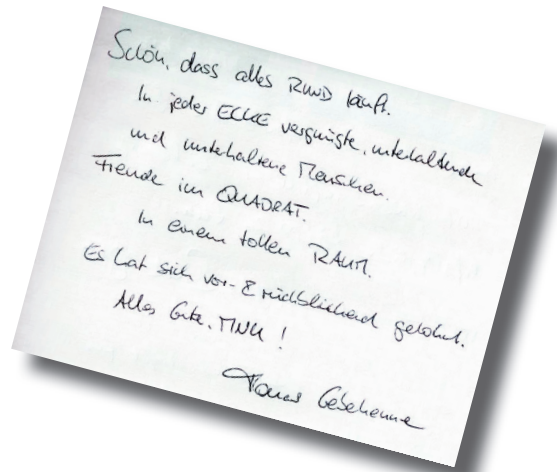 Schön, dass alles RUND läuft.
In jeder ECKE vergnügte, unterhaltende
und unterhaltene Menschen.
Freude im QUADRAT.
In einem tollen RAUM.
Es hat sich vor- & rückblickend gelohnt.
Alles Gute, MNU!